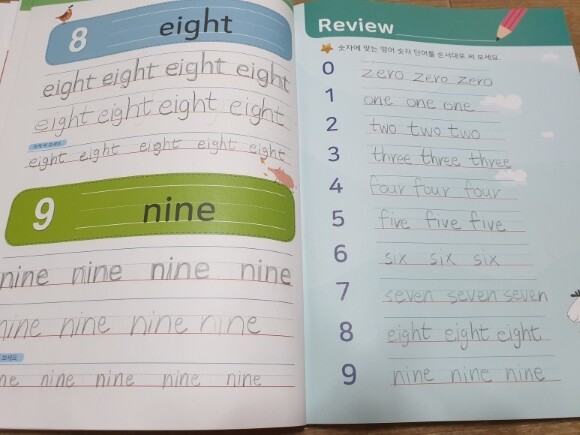 8 eight
eight eight eight eight
eight eight eight eight
eight eight eight eight eight
9 nine
nine nine nine nine
nine nine nine nine
보세요
nine nine nine nine
Review
숫자에 맞는 영어 숫자 단어를 순서대로 써 보세요.
0 zero zero zero
1 one one one
2 two two two
3 three three three
4 four four four
5 five five five
6 six six six
7 seven seven seven
8 eight eight eight
9 nine nine nine